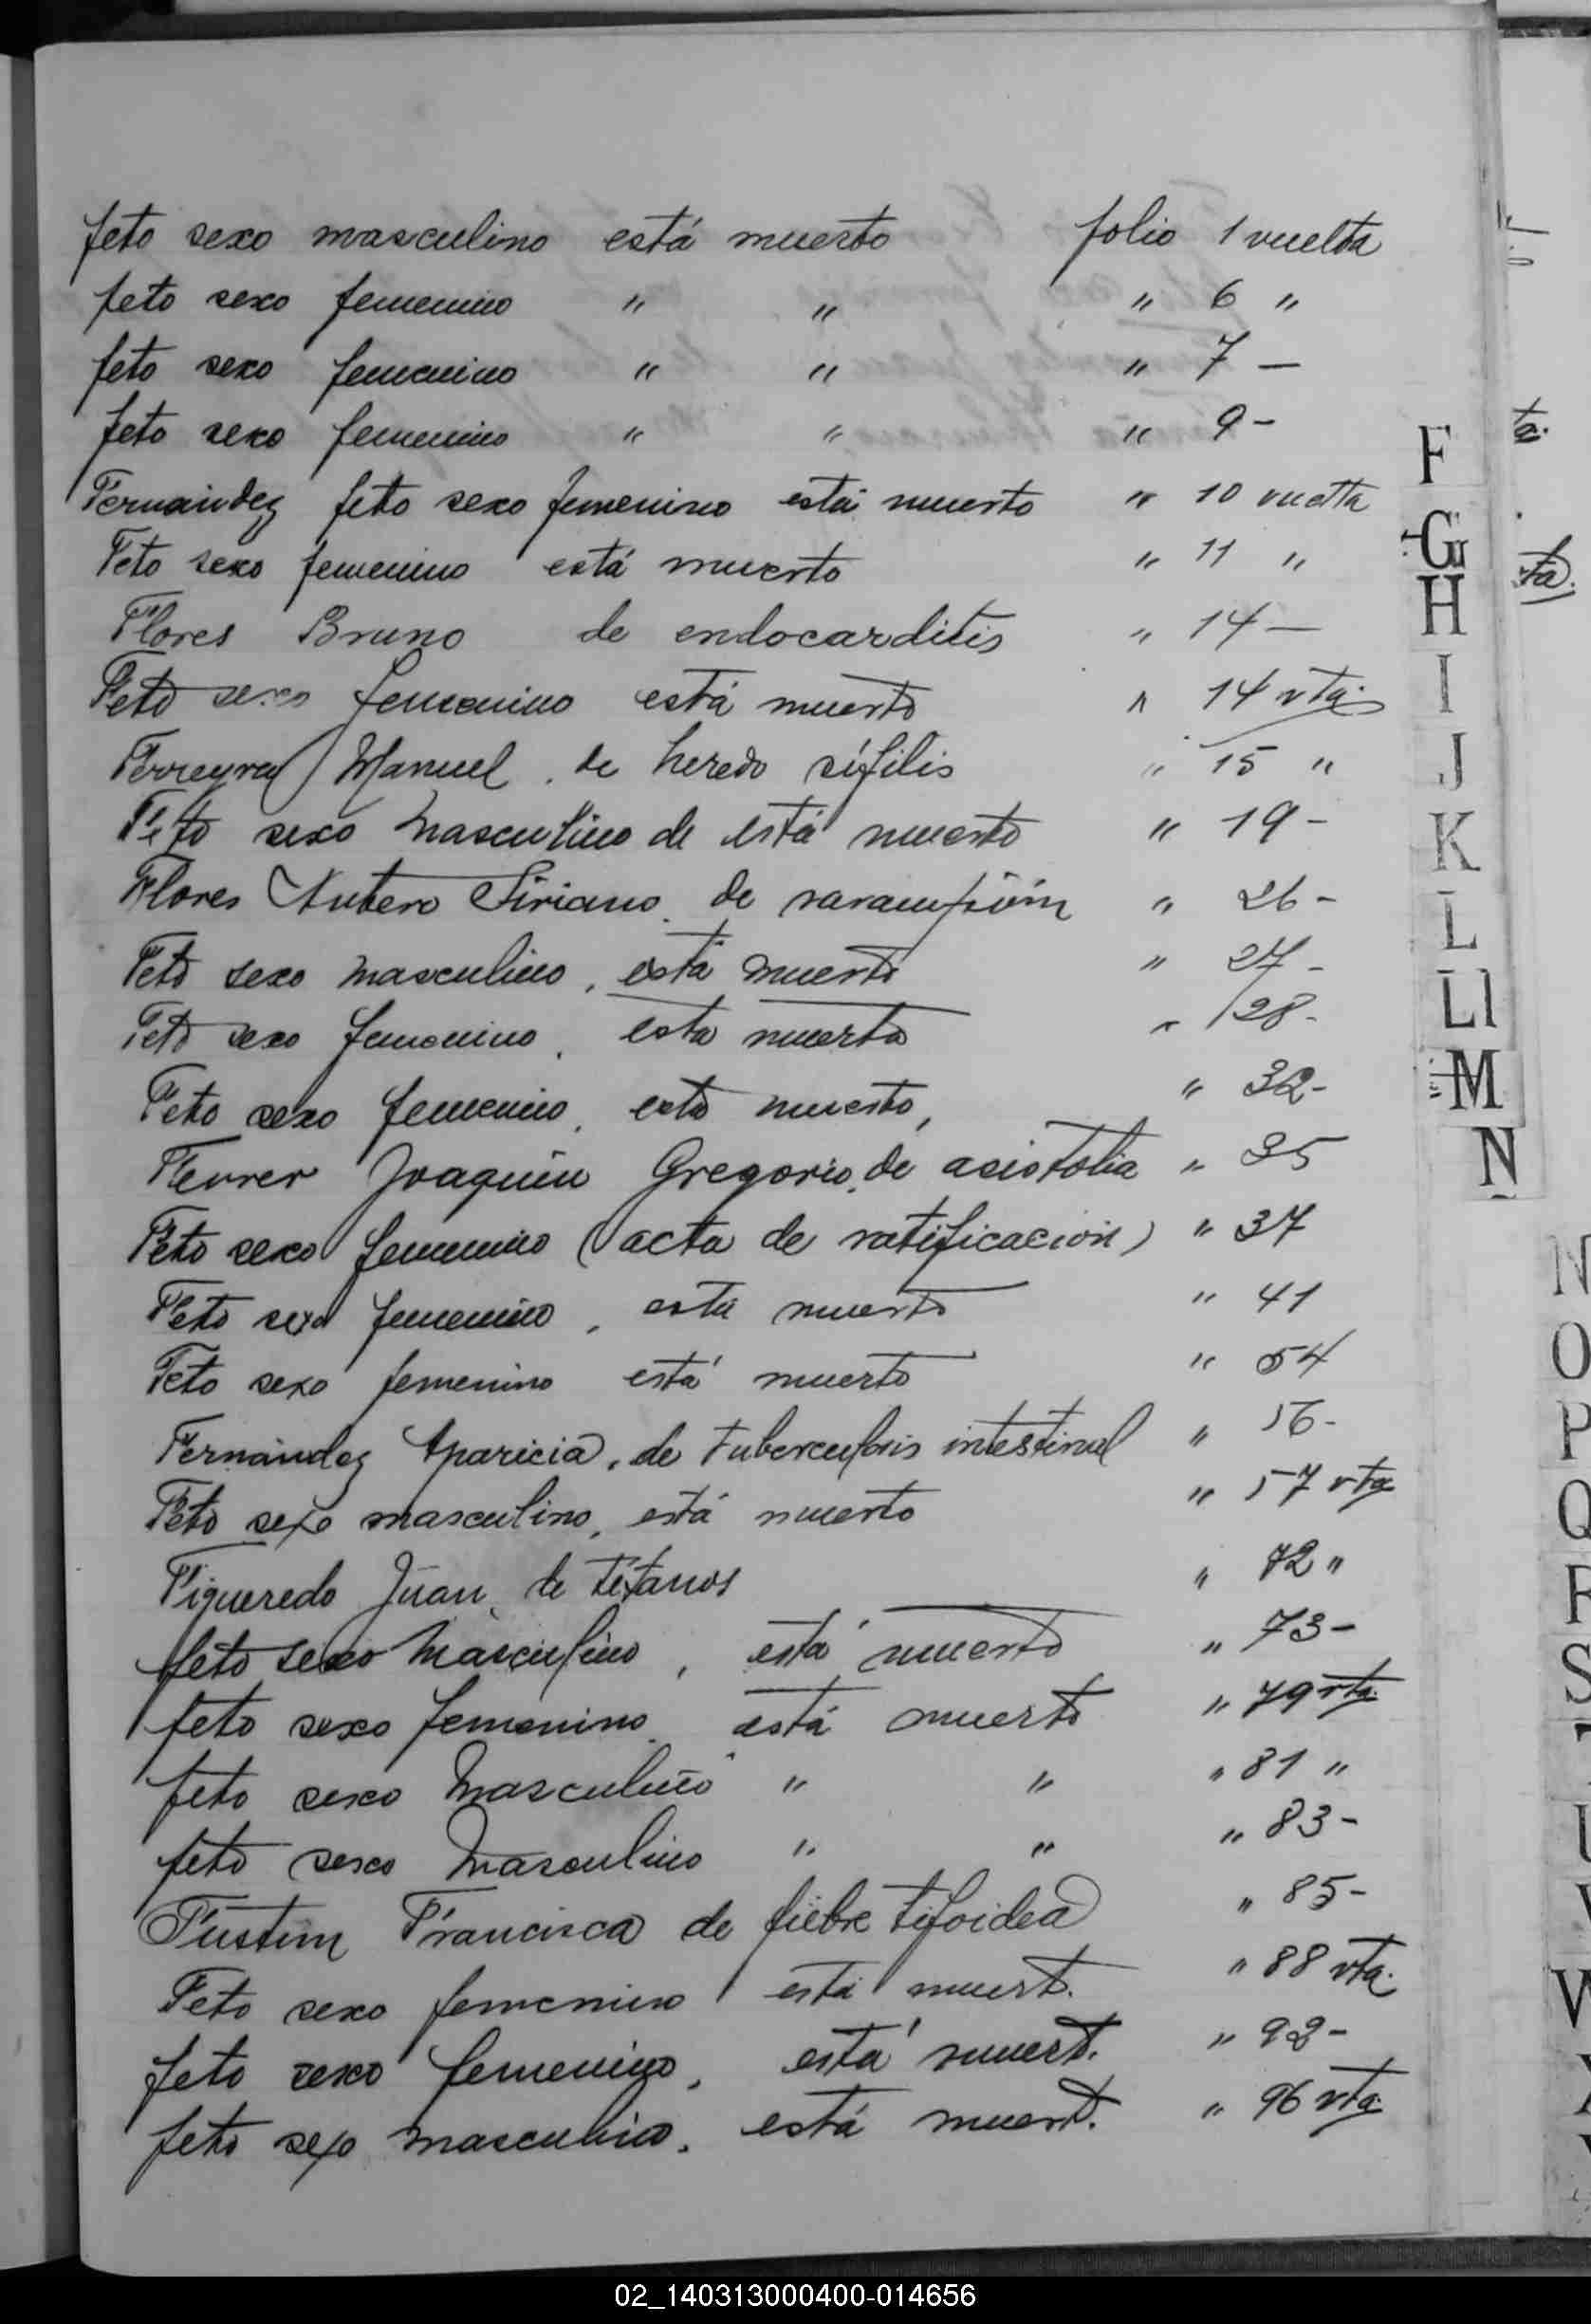 feto sexo masculino está muerto folio 1 vuelta
feto sexo femenino " " " 6 "
feto sexo femenino " " " 7 —
feto sexo femenino " " " 9 -
Fernández feto sexo femenino está muerto " 10 vuelta
Feto sexo femenino está muerto " 11 "
Flores Bruno de endocarditis " 14 —
Feto sexo femenino está muerto " 14 vta.
Ferreyra Manuel, de heredo sífilis " 15 "
Feto sexo masculino de está muerto " 19 -
Flores Siriano de sarampión " 26 -
Feto sexo masculino, está muerto " 27 -
Feto sexo femenino, esta muerto " 28 -
Feto sexo femenino, esta muerto, " 32 -
Joaquín Gregorio, de asistolia " 35
Feto sexo femenino (acta de ratificación) " 37
Feto sexo femenino, está muerto " 41
Feto sexo femenino está muerto " 54
Fernández Aparicia, de tuberculosis intestinal " 56 -
Feto sexo masculino, está muerto " 57 vta
Figueredo Juan, de tétanos " 72 "
feto sexo masculino, está muerto " 73 -
feto sexo femenino, está muerto " 79 vta.
feto sexo masculino " " " 81 "
feto sexo masculino " " " 83 -
Francisca de fiebre tifoidea " 85 -
Feto sexo femenino está muert. " 88 vta.
feto sexo femenino, está muert. " 92 -
feto sexo masculino, está muert. " 96 vta.
F
G
H
I
J
K
L
Ll
M
N
N
O
P
Q
S
02_140313000400-014656